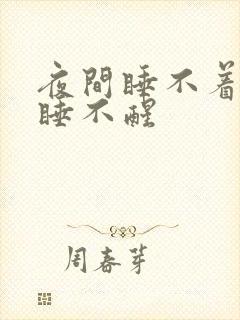 夜間睡不着
睡不醒
周春芽